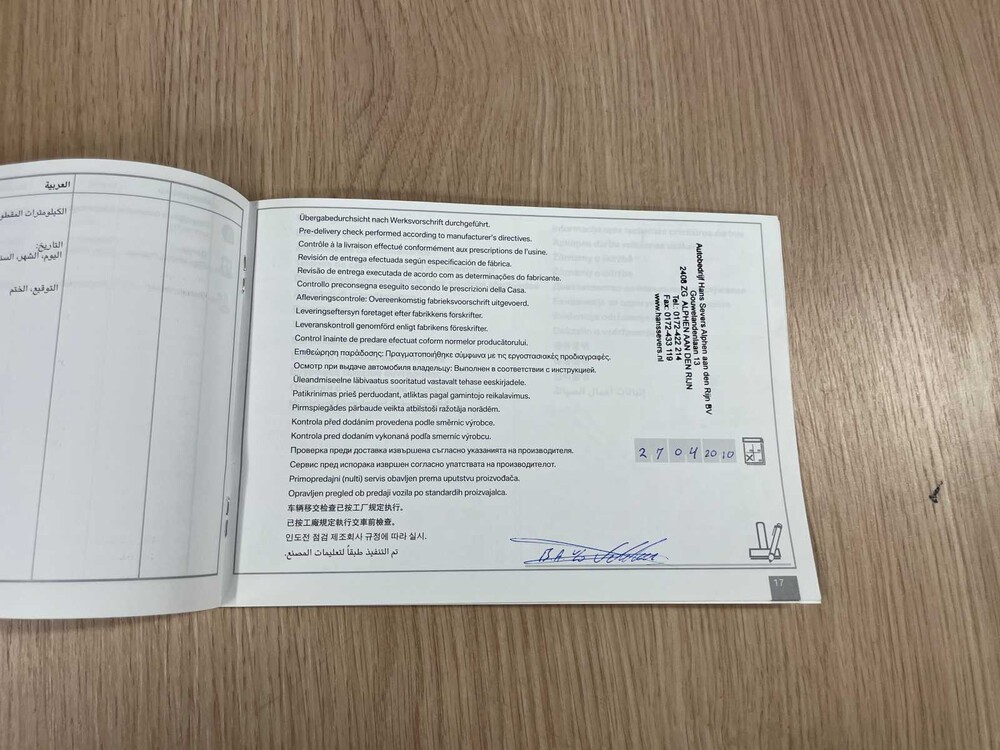 العربية
الكيلومترات
التاريخ:
اليوم، الشهر،
التوقيع، الختم
Übergabedurchsicht nach Werksvorschrift durchgeführt.
Pre-delivery check performed according to manufacturer's directives.
Contrôle à la livraison effectué conformément aux prescriptions de l'usine.
Revisión de entrega efectuada según especificación de fábrica.
Revisão de entrega executada de acordo com as determinações do fabricante.
Controllo preconsegna eseguito secondo le prescrizioni della Casa.
Afleveringscontrole: Overeenkomstig fabrieksvoorschrift uitgevoerd.
Leveringseftersyn foretaget efter fabrikkens forskrifter.
Leveranskontroll genomförd enligt fabrikens föreskrifter.
Control înainte de predare efectuat coform normelor producătorului.
Επιθεώρηση παράδοσης: Πραγματοποιήθηκε σύμφωνα με τις εργοστασιακές προδιαγραφές.
Осмотр при выдаче автомобиля владельцу: Выполнен в соответствии с инструкцией.
Üleandmiseelne läbivaatus sooritatud vastavalt tehase eeskirjadele.
Patikrinimas prieš perduodant, atliktas pagal gamintojo reikalavimus.
Pirmspiegādes pārbaude veikta atbilstoši ražotāja norādēm.
Kontrola před dodáním provedena podle směrnic výrobce.
Kontrola pred dodaním vykonaná podľa smerníc výrobcu.
Проверка преди доставка извършена съгласно указанията на производителя.
Сервис пред испорака извршен согласно упатствата на производителот.
Primopredajni (nulti) servis obavljen prema uputstvu proizvođača.
Opravljen pregled ob predaji vozila po standardih proizvajalca.
车辆移交检查已按工厂规定执行。
已按工廠規定執行交車前檢查。
인도전 점검 제조회사 규정에 따라 실시.
تم التنفيذ طبقاً لتعليمات المصنع.
Autobedrijf Hans Severs Alphen aan den Rijn BV
Gouwelandenlaan 13
2408 ZG ALPHEN AAN DEN RIJN
Tel.: 0172-422 214
Fax: 0172-433 119
www.hanssevers.nl
27 04 2010
17